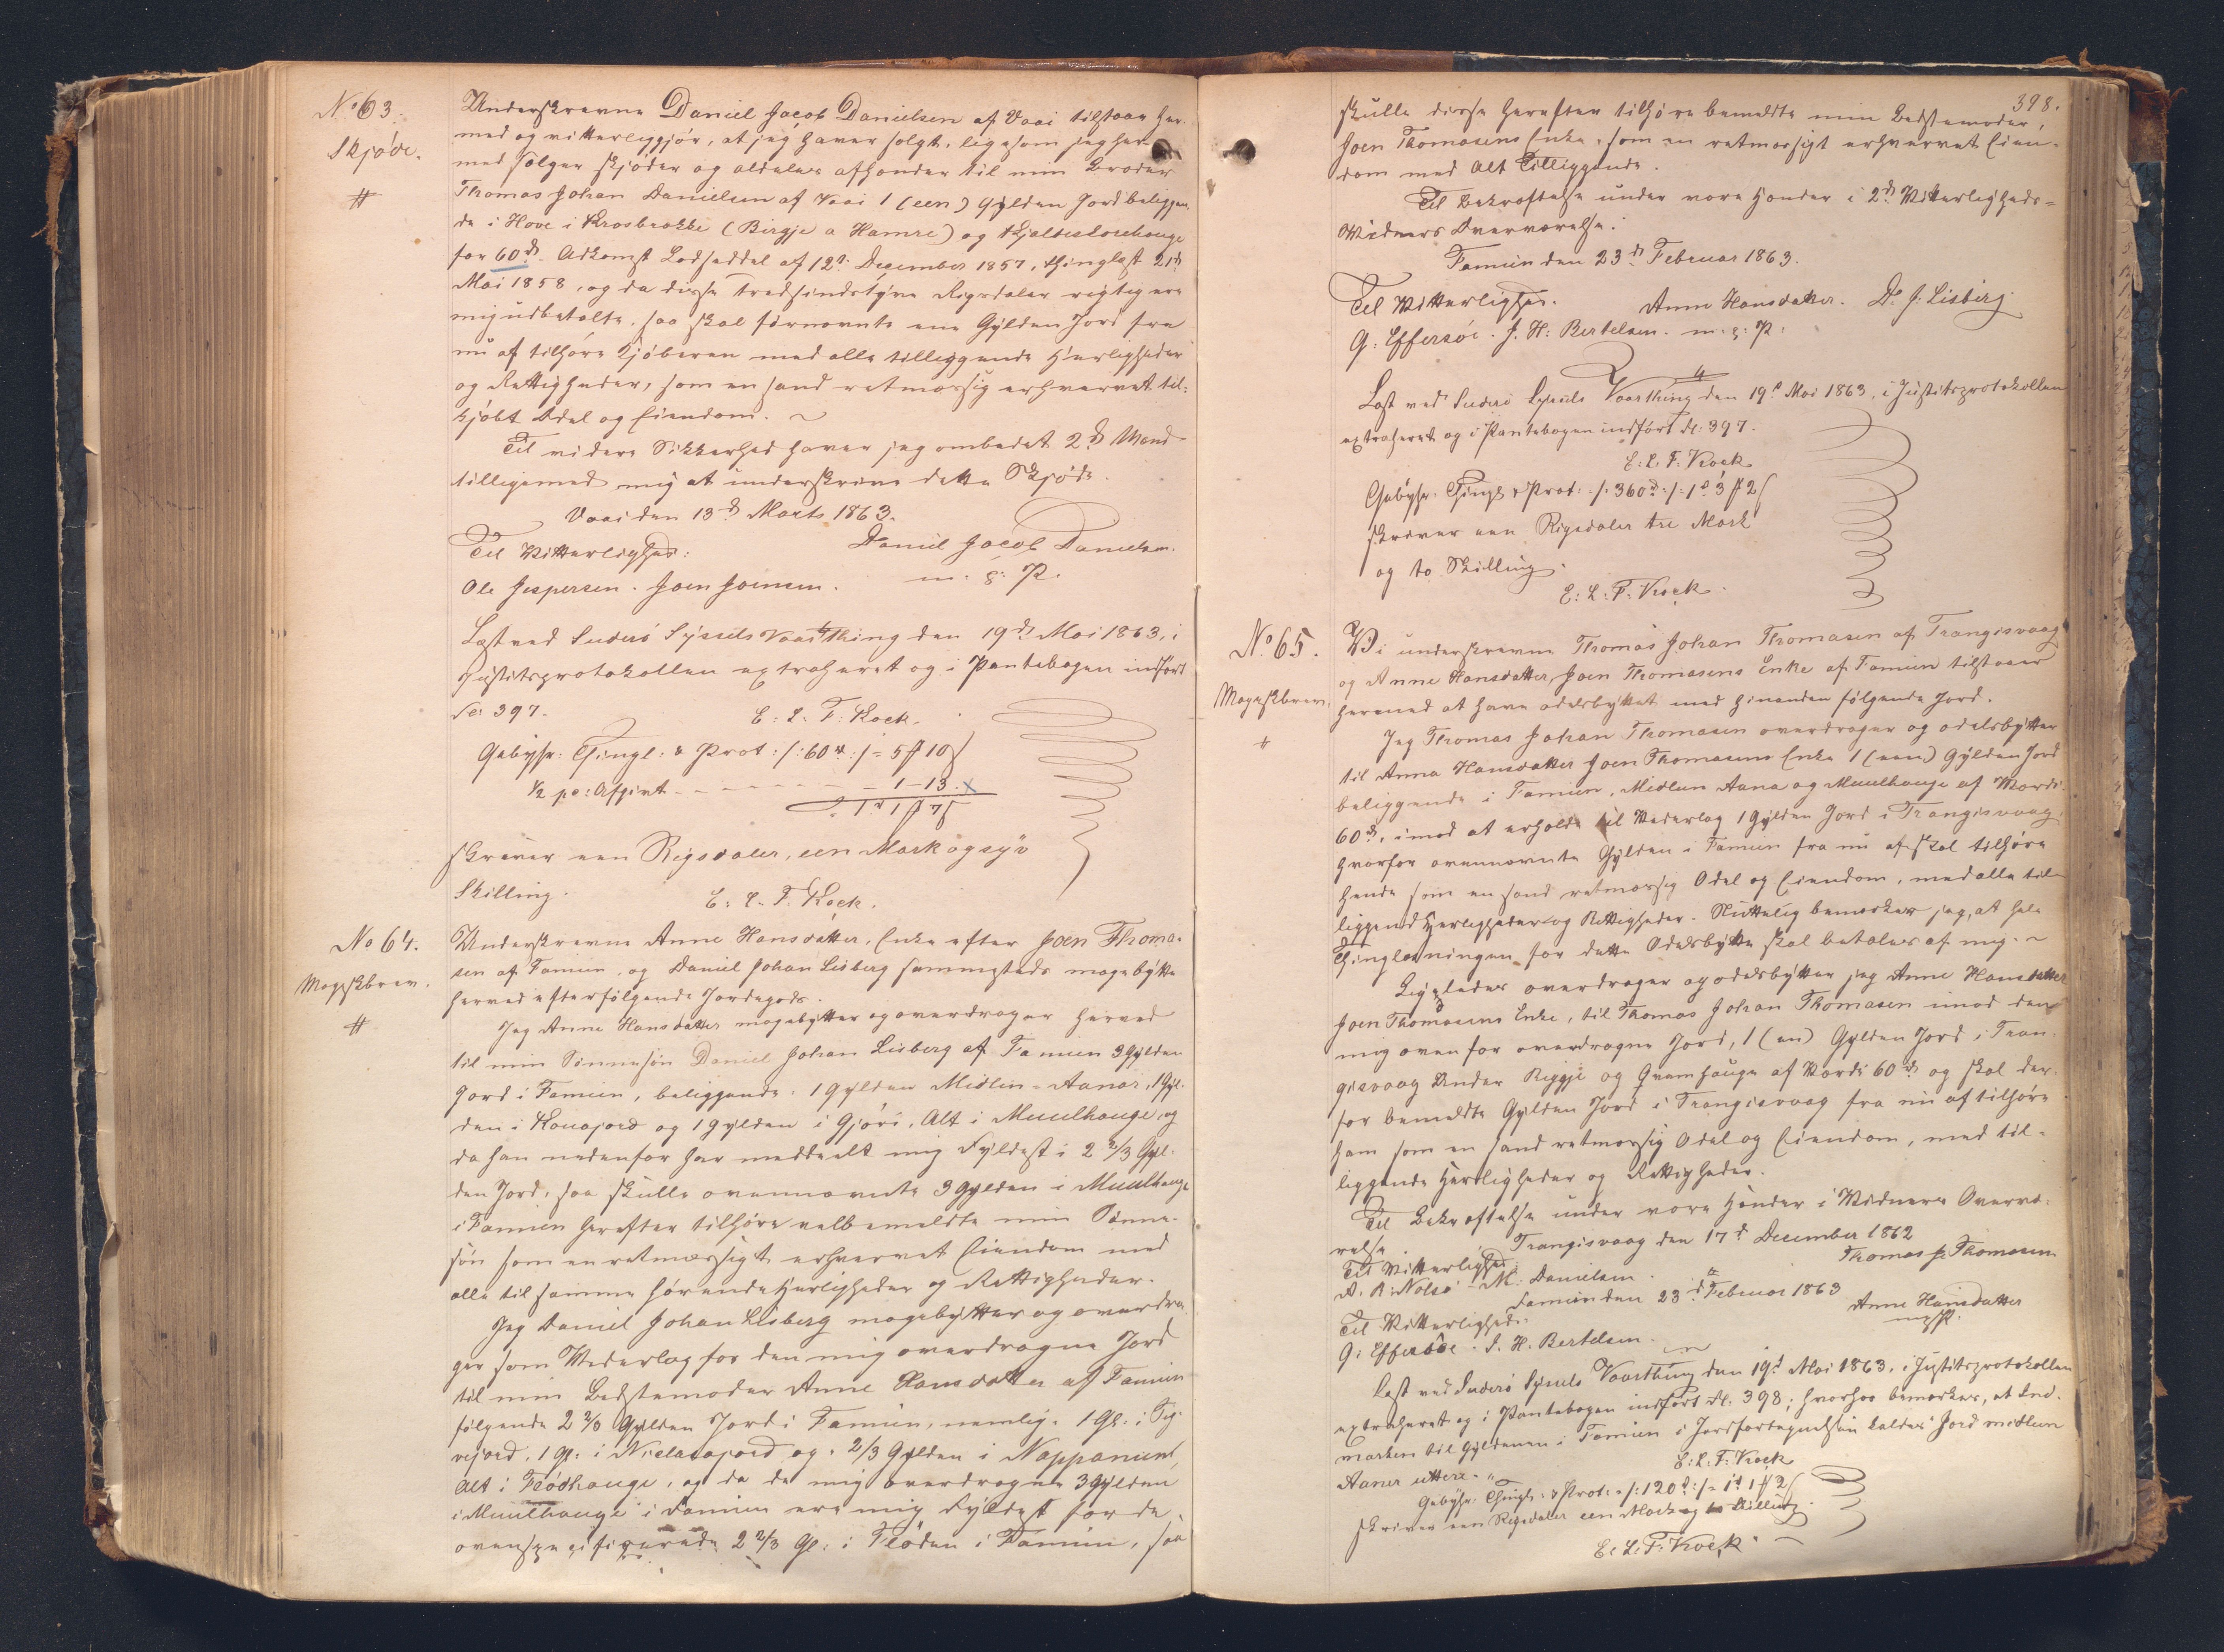 No 63.
Skjøde.
#
Underskrevne Daniel Jacob Danielsen af Vaai tilstaar her-
med og vitterliggjør, at jeg haver solgt, ligesom jeg her-
med sælger skjøder og aldeles afhænder til min Broder
Thomas Johan Danielsen af Vaai 1 (een) Gylden Jord beliggen-
de i Hove i Krosbrekke (Birgje a Hamre) og
for 60 rd. Adkomst Lodseddel af 12te December 1857, thinglæst 21de
Mai 1858, og da disse tredsindstyve Rigsdaler rigtig ere
mig udbetalte, saa skal fornævnte ene Gylden Jord fra
nu af tilhøre Kjøberen med alle tilliggende Herligheder
og Rettigheder, som en sand retmæssig erhvervet til-
kjøbt Odel og Eiendom.
Til videre Sikkerhed haver jeg ombedet 2de Mænd
tilligemed mig at underskrive dette Skjøde.
Vaai den 13de Marts 1863.
Til Vitterlighed: Daniel Jacob Danielsen.
Ole Jespersen. Joen Joensen. m. f. P.
Læst ved Suderø Syssels Vaarthing den 19de Mai 1863, i
Justitsprotokollen extraheret og i Pantebogen indført
Fo: 397. E: L: F: Kock.
Gebyhr: Thingl: & Prot: /: 60 rd :/ = 5 # 10 s
1/2 pc: Afgivt - - - - - - 1 - 13.
1 rd 1 # 7 s
skriver een Rigsdaler, een Mark og syv
Skilling. E: L: F: Kock.
No 64.
Mageskbrev.
#
Underskrevne Anne Hansdatter, Enke efter Joen Thoma-
sen af Famien, og Daniel Johan Lisberg sammesteds magebytte
herved efterfølgende Jordegods.
Jeg Anne Hansdatter magebytter og overdrager herved
til min Sønnesøn Daniel Johan Lisberg af Famien 3 Gylden
Jord i Famien, beliggende: 1 Gylden Midlin-Aanar, 1 Gyl-
den i Konajord og 1 Gylden i Gjøri, Alt i Muulhauge, og
da han nedenfor har meddeelt mig Fyldest i 2 2/3 Gyl-
den Jord, saa skulle ovennævnte 3 Gylden i Muulhauge
i Famien herefter tilhøre velbemeldte min Sønne-
søn som en retmæssigt erhvervet Eiendom med
alle til samme hørende Herligheder og Rettigheder.
Jeg Daniel Johan Lisberg magebytter og overdra-
ger som Vederlag for den mig overdragne Jord
til min Bedstemoder Anne Hansdatter af Famien
følgende 2 2/3 Gylden Jord i Famien, nemlig: 1 Gl: i
vejord, 1 Gl: i Nielasajord og 2/3 Gylden i
Alt i Flødhauge, og da de mig overdragne 3 Gylden
i Muulhauge i Famien ere mig Fyldest for de
ovenspecificerede 2 2/3 Gl: i Fløden i Famien, saa
398.
skulle disse herefter tilhøre bemeldte min Bedstemoder,
Joen Thomasens Enke, som en retmæssigt erhvervet Eien-
dom med Alt Tilliggende.
Til Bekræftelse under vore Hænder i 2de Vitterligheds-
Vidners Overværelse.
Famien den 23de Februar 1863.
Til Vitterlighed. Anne Hansdatter. D. J: Lisberg.
G: Effersøe. J. H: Bertelsen. m: f: P:
Læst ved Suderø Syssels Vaarthing den 19de Mai 1863, i Justitsprotokollen
extraheret og i Pantebogen indført Fo: 397.
E: L: F: Kock
Gebyhr: Thingl: & Prot: /: 360 rd :/ : 1 rd 3 # 2 s
skriver een Rigsdaler tre Mark
og to Skilling.
E: L: F: Kock.
No 65.
Mageskbrev.
#
Vi underskrevne Thomas Johan Thomasen af Trangisvaag
og Anne Hansdatter, Joen Thomasens Enke af Famien tilstaaer
hermed at have odelsbyttet med hinanden følgende Jord.
Jeg Thomas Johan Thomasen overdrager og odelsbytter
til Anna Hansdatter Joen Thomasens Enke 1 (een) Gylden Jord
beliggende i Famien, Midlum Aana og Muulhauge af Værdi
60 rd, imod at erholde til Vederlag 1 Gylden Jord i Trangisvaag,
hvorfor ovennævnte Gylden i Famien fra nu af skal tilhøre
hende som en sand retmæssig Odel og Eiendom, med alle til-
liggende Herligheder og Rettigheder. Sluttelig bemærker jeg, at hele
Thinglæsningen for dette Odelsbytte skal betales af mig.
Ligeledes overdrager og odelsbytter jeg Anne Hansdatter
Joen Thomasens Enke, til Thomas Johan Thomasen imod den
mig ovenfor overdragne Jord, 1 (en) Gylden Jord i Tran-
gisvaag Under Riggje og Hvamhauge af Værdi 60 rd og skal der-
for bemeldte Gylden Jord i Trangisvaag fra nu af tilhøre
ham som en sand retmæssig Odel og Eiendom, med til-
liggende Herligheder og Rettigheder.
Til Bekræftelse under vore Hænder i Vidners Overvæ-
relse. Trangisvaag den 17de December 1862
Til Vitterlighed: Thomas J. Thomasen
A. R. Nolsø - M: Danielsen.
Famien den 23de Februar 1863
Til Vitterlighed: Anne Hansdatter
G: Effersøe. J. H. Bertelsen. m f P.
Læst ved Suderø Syssels Vaarthing den 19de Mai 1863, i Justitsprotokollen
extraheret og i Pantebogen indført Fo: 398; hvorhos bemærkes, at Ind-
marken til Gyldenen i Famien i Jordfortegnelsen kaldes "Jord midlum
Aaner uttere." E: L: F: Kock
Gebyhr: Thingl: & Prot: /: 120 rd :/ = 1 rd 1 # 2 s
skriver een Rigsdaler een Mark og to Skilling.
E: L: F: Kock.